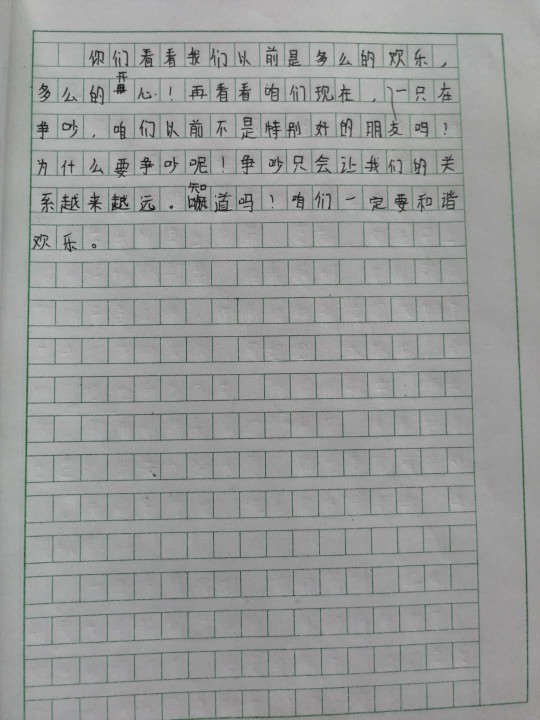 你们看看我们以前是多么的欢乐，
多么的开心！再看看咱们现在，一只在
争吵，咱们以前不是特别好的朋友吗！
为什么要争吵呢！争吵只会让我们的关
系越来越远。知道吗！咱们一定要和谐
欢乐。